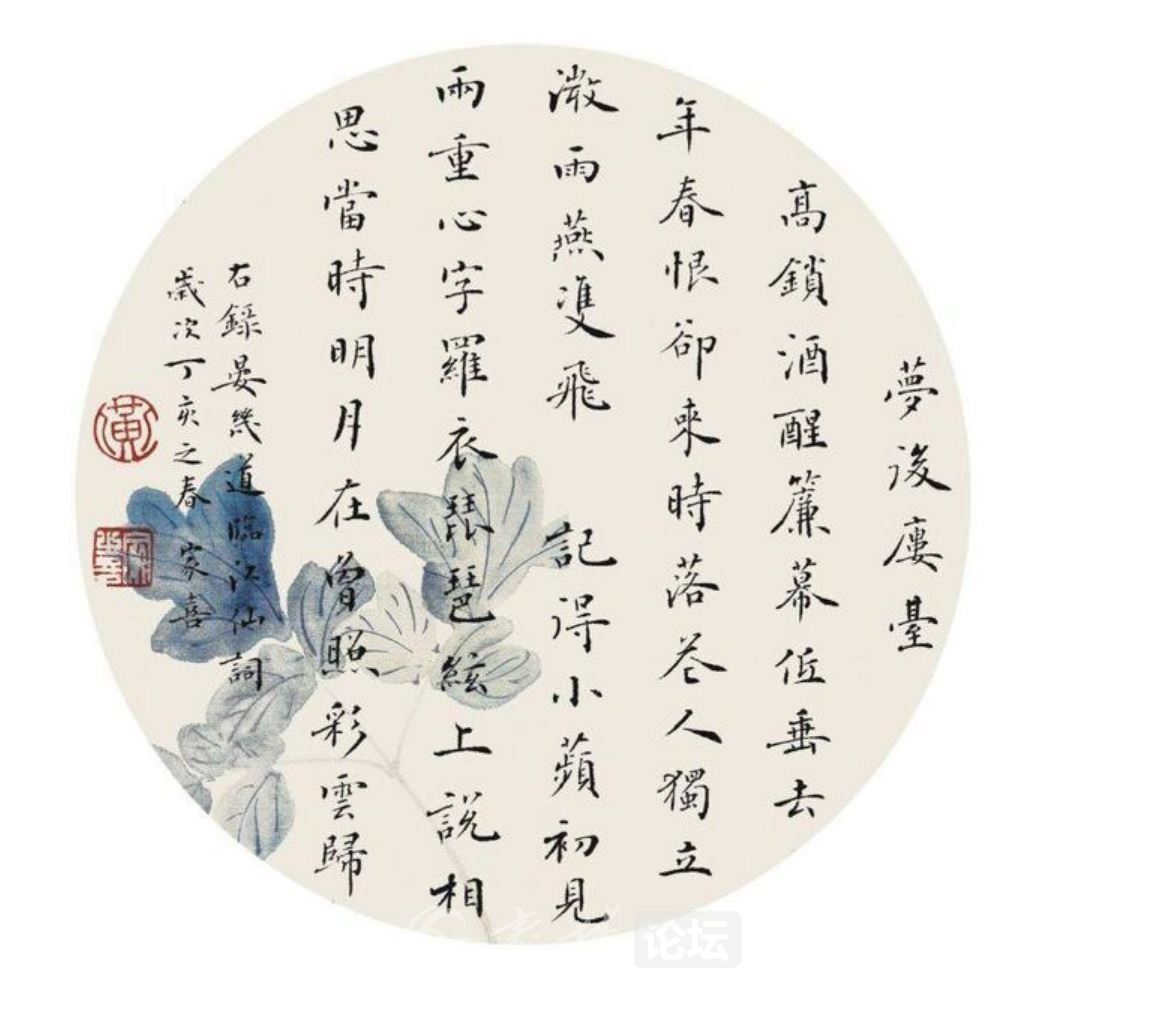 夢後廔臺
高鎖酒醒簾幕低垂去
年春恨卻來時落花人獨立
微雨燕雙飛 記得小蘋初見
兩重心字羅衣琵琶絃上說相
思當時明月在曾照彩雲歸
右錄晏幾道臨江仙詞
歲次丁亥之春 家喜
黃
论坛